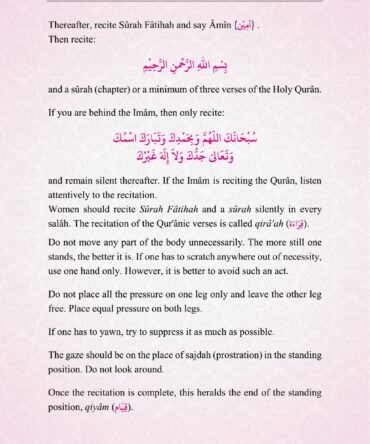 Thereafter, recite Sûrah Fâtihah and say Âmîn {آمِيْن} .
Then recite:
بِسْمِ اللهِ الرَّحْمٰنِ الرَّحِيْمِ
and a sûrah (chapter) or a minimum of three verses of the Holy Qurân.
If you are behind the Imâm, then only recite:
سُبْحَانَكَ اللّٰهُمَّ وَبِحَمْدِكَ وَتَبَارَكَ اسْمُكَ
وَتَعَالىٰ جَدُّكَ وَلاَ إِلٰهَ غَيْرُكَ
and remain silent thereafter. If the Imâm is reciting the Qurân, listen
attentively to the recitation.
Women should recite Sûrah Fâtihah and a sûrah silently in every
salâh. The recitation of the Qur'ânic verses is called qirâ'ah (قِرَاءَة).
Do not move any part of the body unnecessarily. The more still one
stands, the better it is. If one has to scratch anywhere out of necessity,
use one hand only. However, it is better to avoid such an act.
Do not place all the pressure on one leg only and leave the other leg
free. Place equal pressure on both legs.
If one has to yawn, try to suppress it as much as possible.
The gaze should be on the place of sajdah (prostration) in the standing
position. Do not look around.
Once the recitation is complete, this heralds the end of the standing
position, qiyâm (قِيَام).